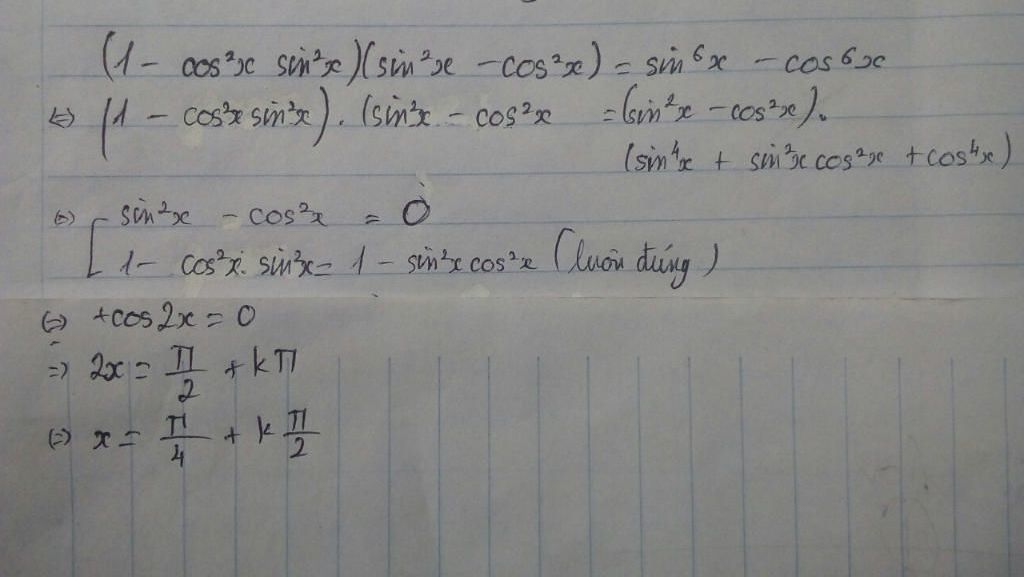 (1 - cos²x sin²x)(sin²x - cos²x) = sin⁶x - cos⁶x
⇔ (1 - cos²x sin²x). (sin²x - cos²x = (sin²x - cos²x).
(sin⁴x + sin²x cos²x + cos⁴x)
⇔ [ sin²x - cos²x = 0
1 - cos²x. sin²x = 1 - sin²x cos²x (luôn đúng)
⇔ +cos2x = 0
⇒ 2x = π/2 + kπ
⇔ x = π/4 + k π/2